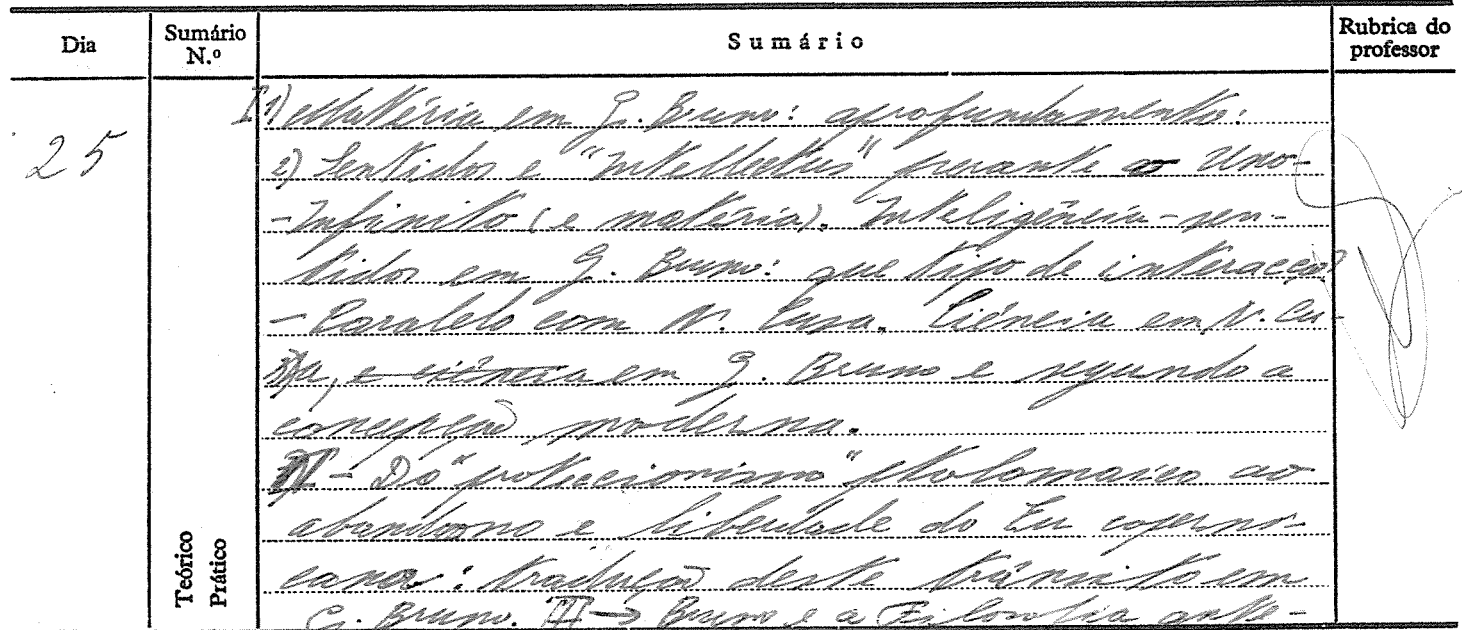 Dia
Sumário N.º
Sumário
Rubrica do professor
25
I 1) Matéria em G. Bruno: aprofundamento.
2) Sentidos e "Intellectus" perante o Uno-
-Infinito (e matéria). Inteligência-sen-
tidos em G. Bruno: que tipo de interacção
- Paralelo com N. Cusa. Ciência em N. Cu-
sa, e ciência em G. Bruno e segundo a
concepção moderna.
II - Do "proteccionismo" ptolomaico ao
abandono e liberdade do Eu coperni-
cano: tradução deste trânsito em
G. Bruno. III → Bruno e a Filosofia ante-
Teórico
Prático